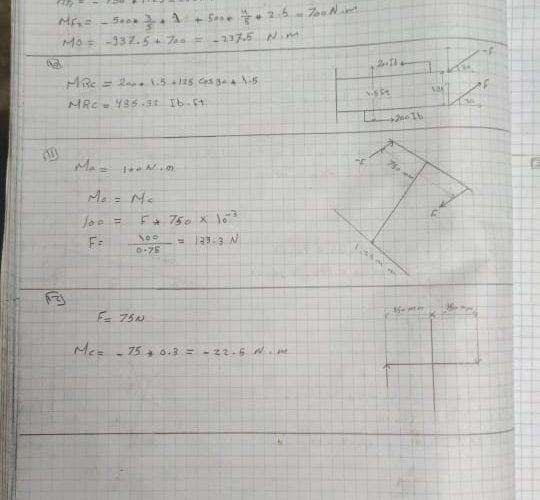 MF₂ = - 500 * 3/5 * 1 + 500 * 4/5 * 2.5 = 700 N.m
MO = -937.5 + 700 = -237.5 N.m
MRc = 200 * 1.5 + 125 cos 30 * 1.5
MRc = 435.33 Ib.ft
200 Ib
-F
30
1.5 ft
F
30
200 Ib
11
Mo = 100 N.m
Mo = Mc
100 = F * 750 × 10⁻³
F = 100/0.75 = 133.3 N
-F
750 mm
F
12
F = 75N
Mc = - 75 * 0.3 = - 22.5 N.m
150 mm
150 mm